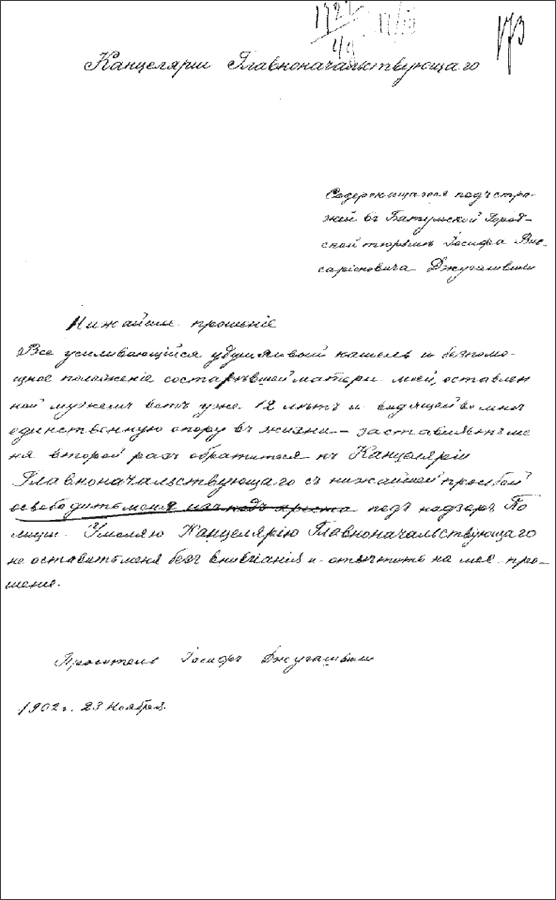 173
Канцелярии Главноначальствующаго
Содержащагося подъ стра-
жей въ Батумской Город-
ской тюрьмѣ Іосифа Вис-
саріоновича Джугашвили
Нижайшее прошеніе
Все усиливающійся удушливый кашель и безпомо-
щное положеніе состарѣвшейся матери моей, оставлен
ной мужемъ вотъ уже 12 лѣтъ и видящей во мнѣ
единственную опору въ жизни – заставляетъ ме
ня второй разъ обратиться къ Канцеляріи
Главноначальствующаго съ нижайшей просьбой
освободить меня изъ подъ ареста подъ надзоръ По
лиціи. Умоляю Канцелярію Главноначальствующаго
не оставить меня безъ вниманія и отвѣтить на мое про-
шеніе.
Проситель Іосифъ Джугашвили
1902 г. 23 Ноября.